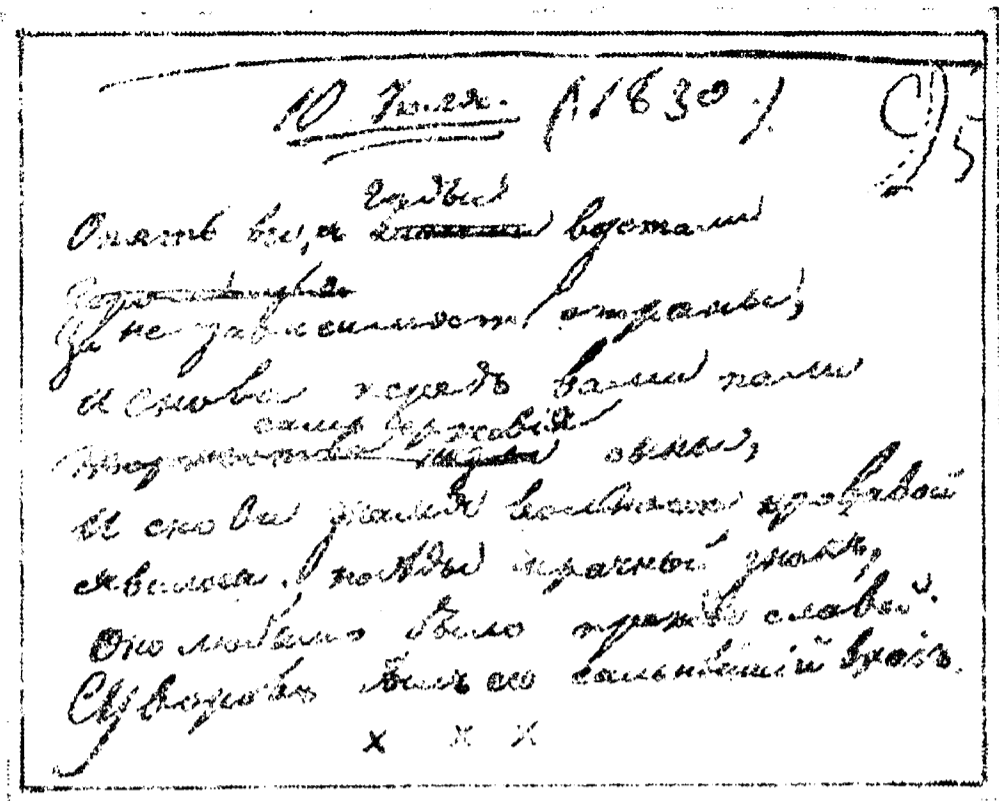 10. Июля. (1830.)
5
гордые
Опять вы, востали
За независимость страны,
И снова передъ вами пали
самодержавія
сыны,
И снова знамя вольности кровавой
Явилося, побѣды мрачный знакъ,
Оно любимо было прежде славой:
Суворовъ былъ его сильнѣйшій врагъ.
x x x